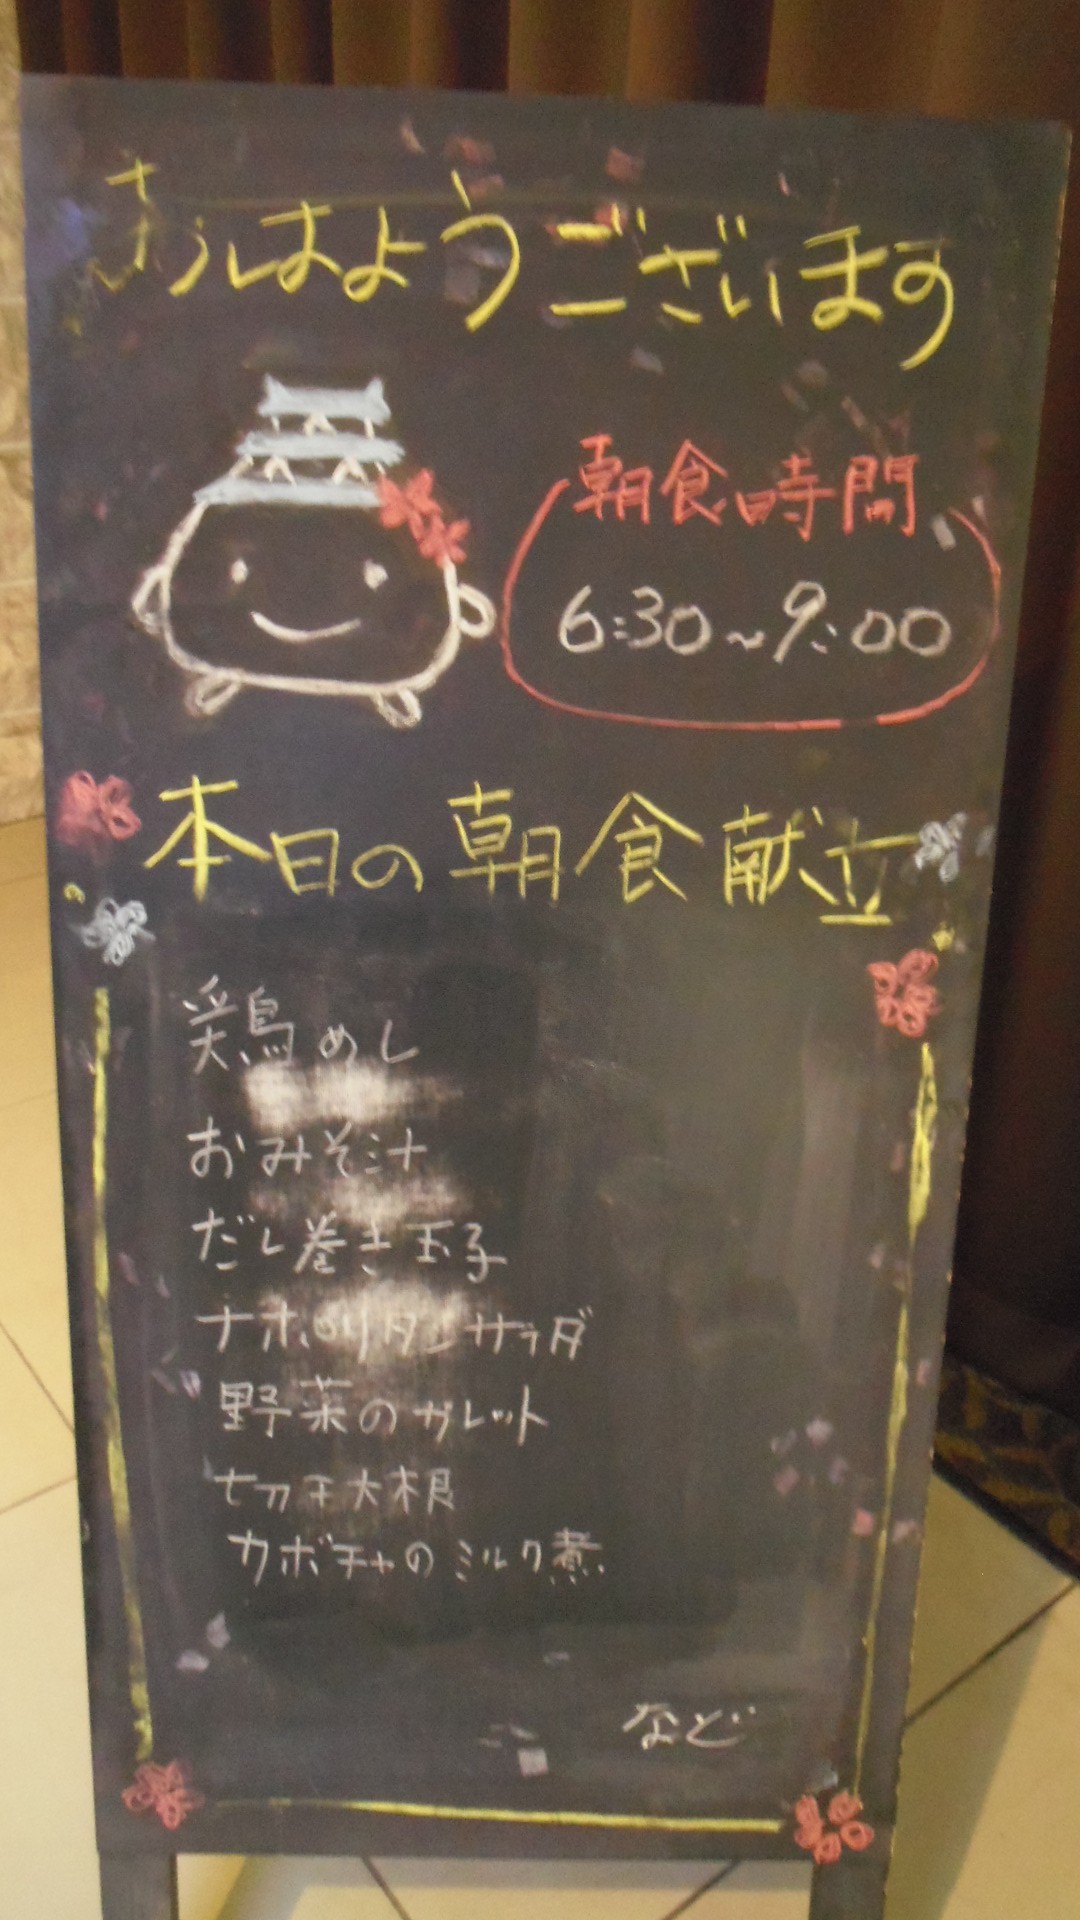 おはようございます
朝食時間
6:30~9:00
本日の朝食献立
鶏めし
おみそ汁
だし巻き玉子
ナポリタンサラダ
野菜のガレット
切干大根
カボチャのミルク煮
など